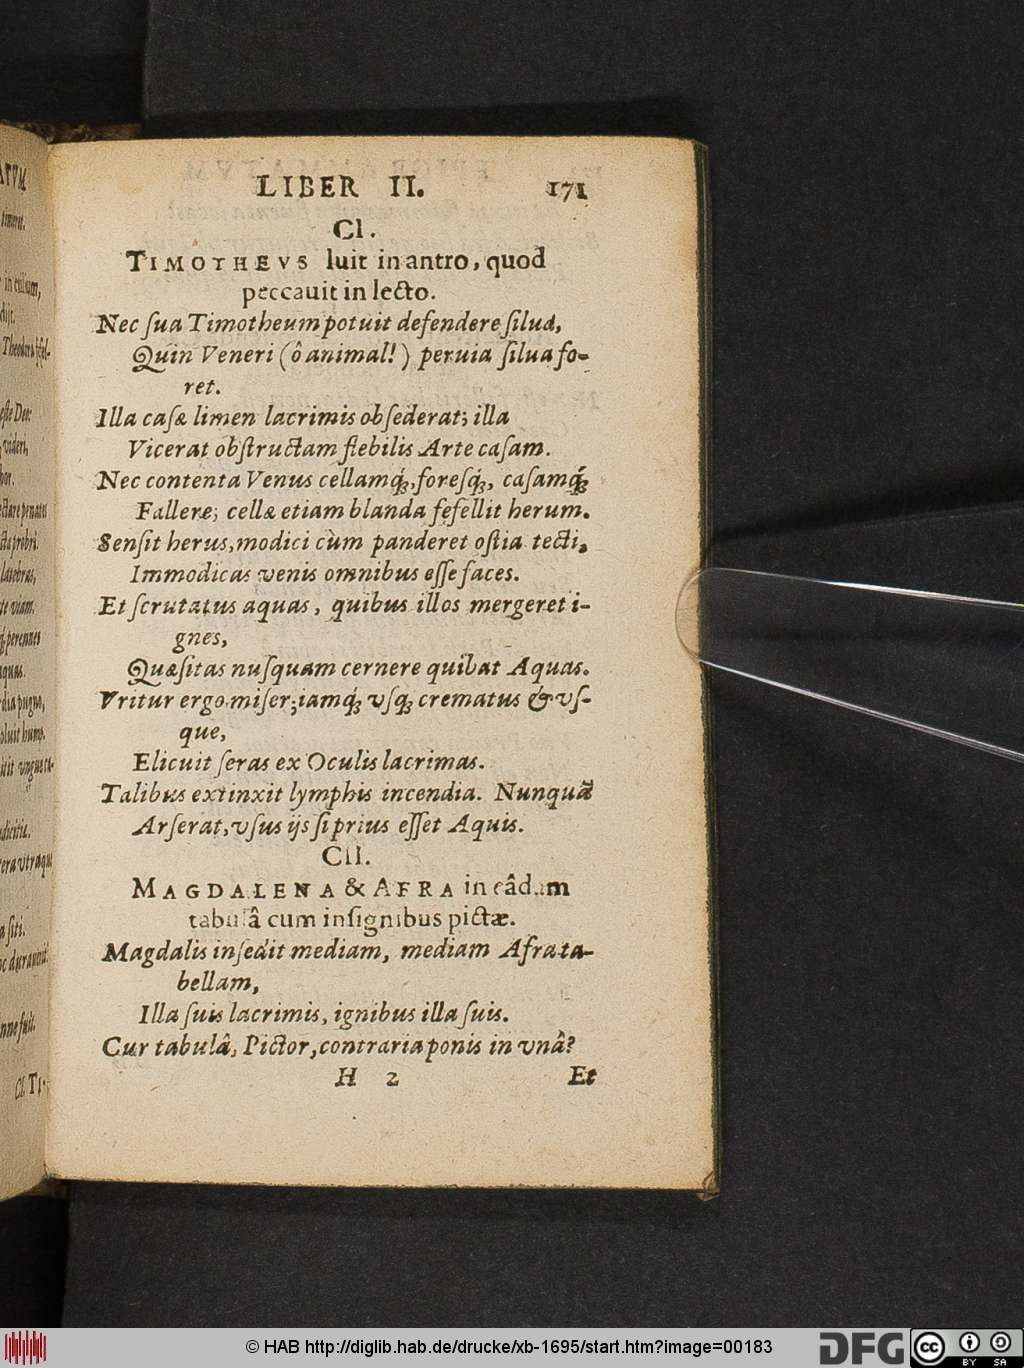 LIBER II. 171
CI.
TIMOTHEVS luit in antro, quod
peccauit in lecto.
Nec ſua Timotheum potuit defendere ſilua,
Quin Veneri (ô animal!) peruia ſilua fo-
ret.
Illa caſæ limen lacrimis obſederat; illa
Vicerat obſtructam flebilis Arte caſam.
Nec contenta Venus cellamq́;, foreſq́;, caſamq́;
Fallere; cellæ etiam blanda fefellit herum.
Senſit herus, modici cùm panderet oſtia tecti,
Immodicas venis omnibus eſſe faces.
Et ſcrutatus aquas, quibus illos mergeret i-
gnes,
Quæſitas nuſquam cernere quibat Aquas.
Vritur ergo miſer; iamq́; vſq; crematus & vſ-
que,
Elicuit ſeras ex Oculis lacrimas.
Talibus extinxit lymphis incendia. Nunquã
Arſerat, vſus ijs ſi prius eſſet Aquis.
CII.
MAGDALENA & AFRA in eâdam
tabulâ cum inſignibus pictæ.
Magdalis inſedit mediam, mediam Afra ta-
bellam,
Illa ſuis lacrimis, ignibus illa ſuis.
Cur tabulâ, Pictor, contraria ponis in vnâ?
H 2 Et
© HAB http://diglib.hab.de/drucke/xb-1695/start.htm?image=00183
DFG
cc BY SA